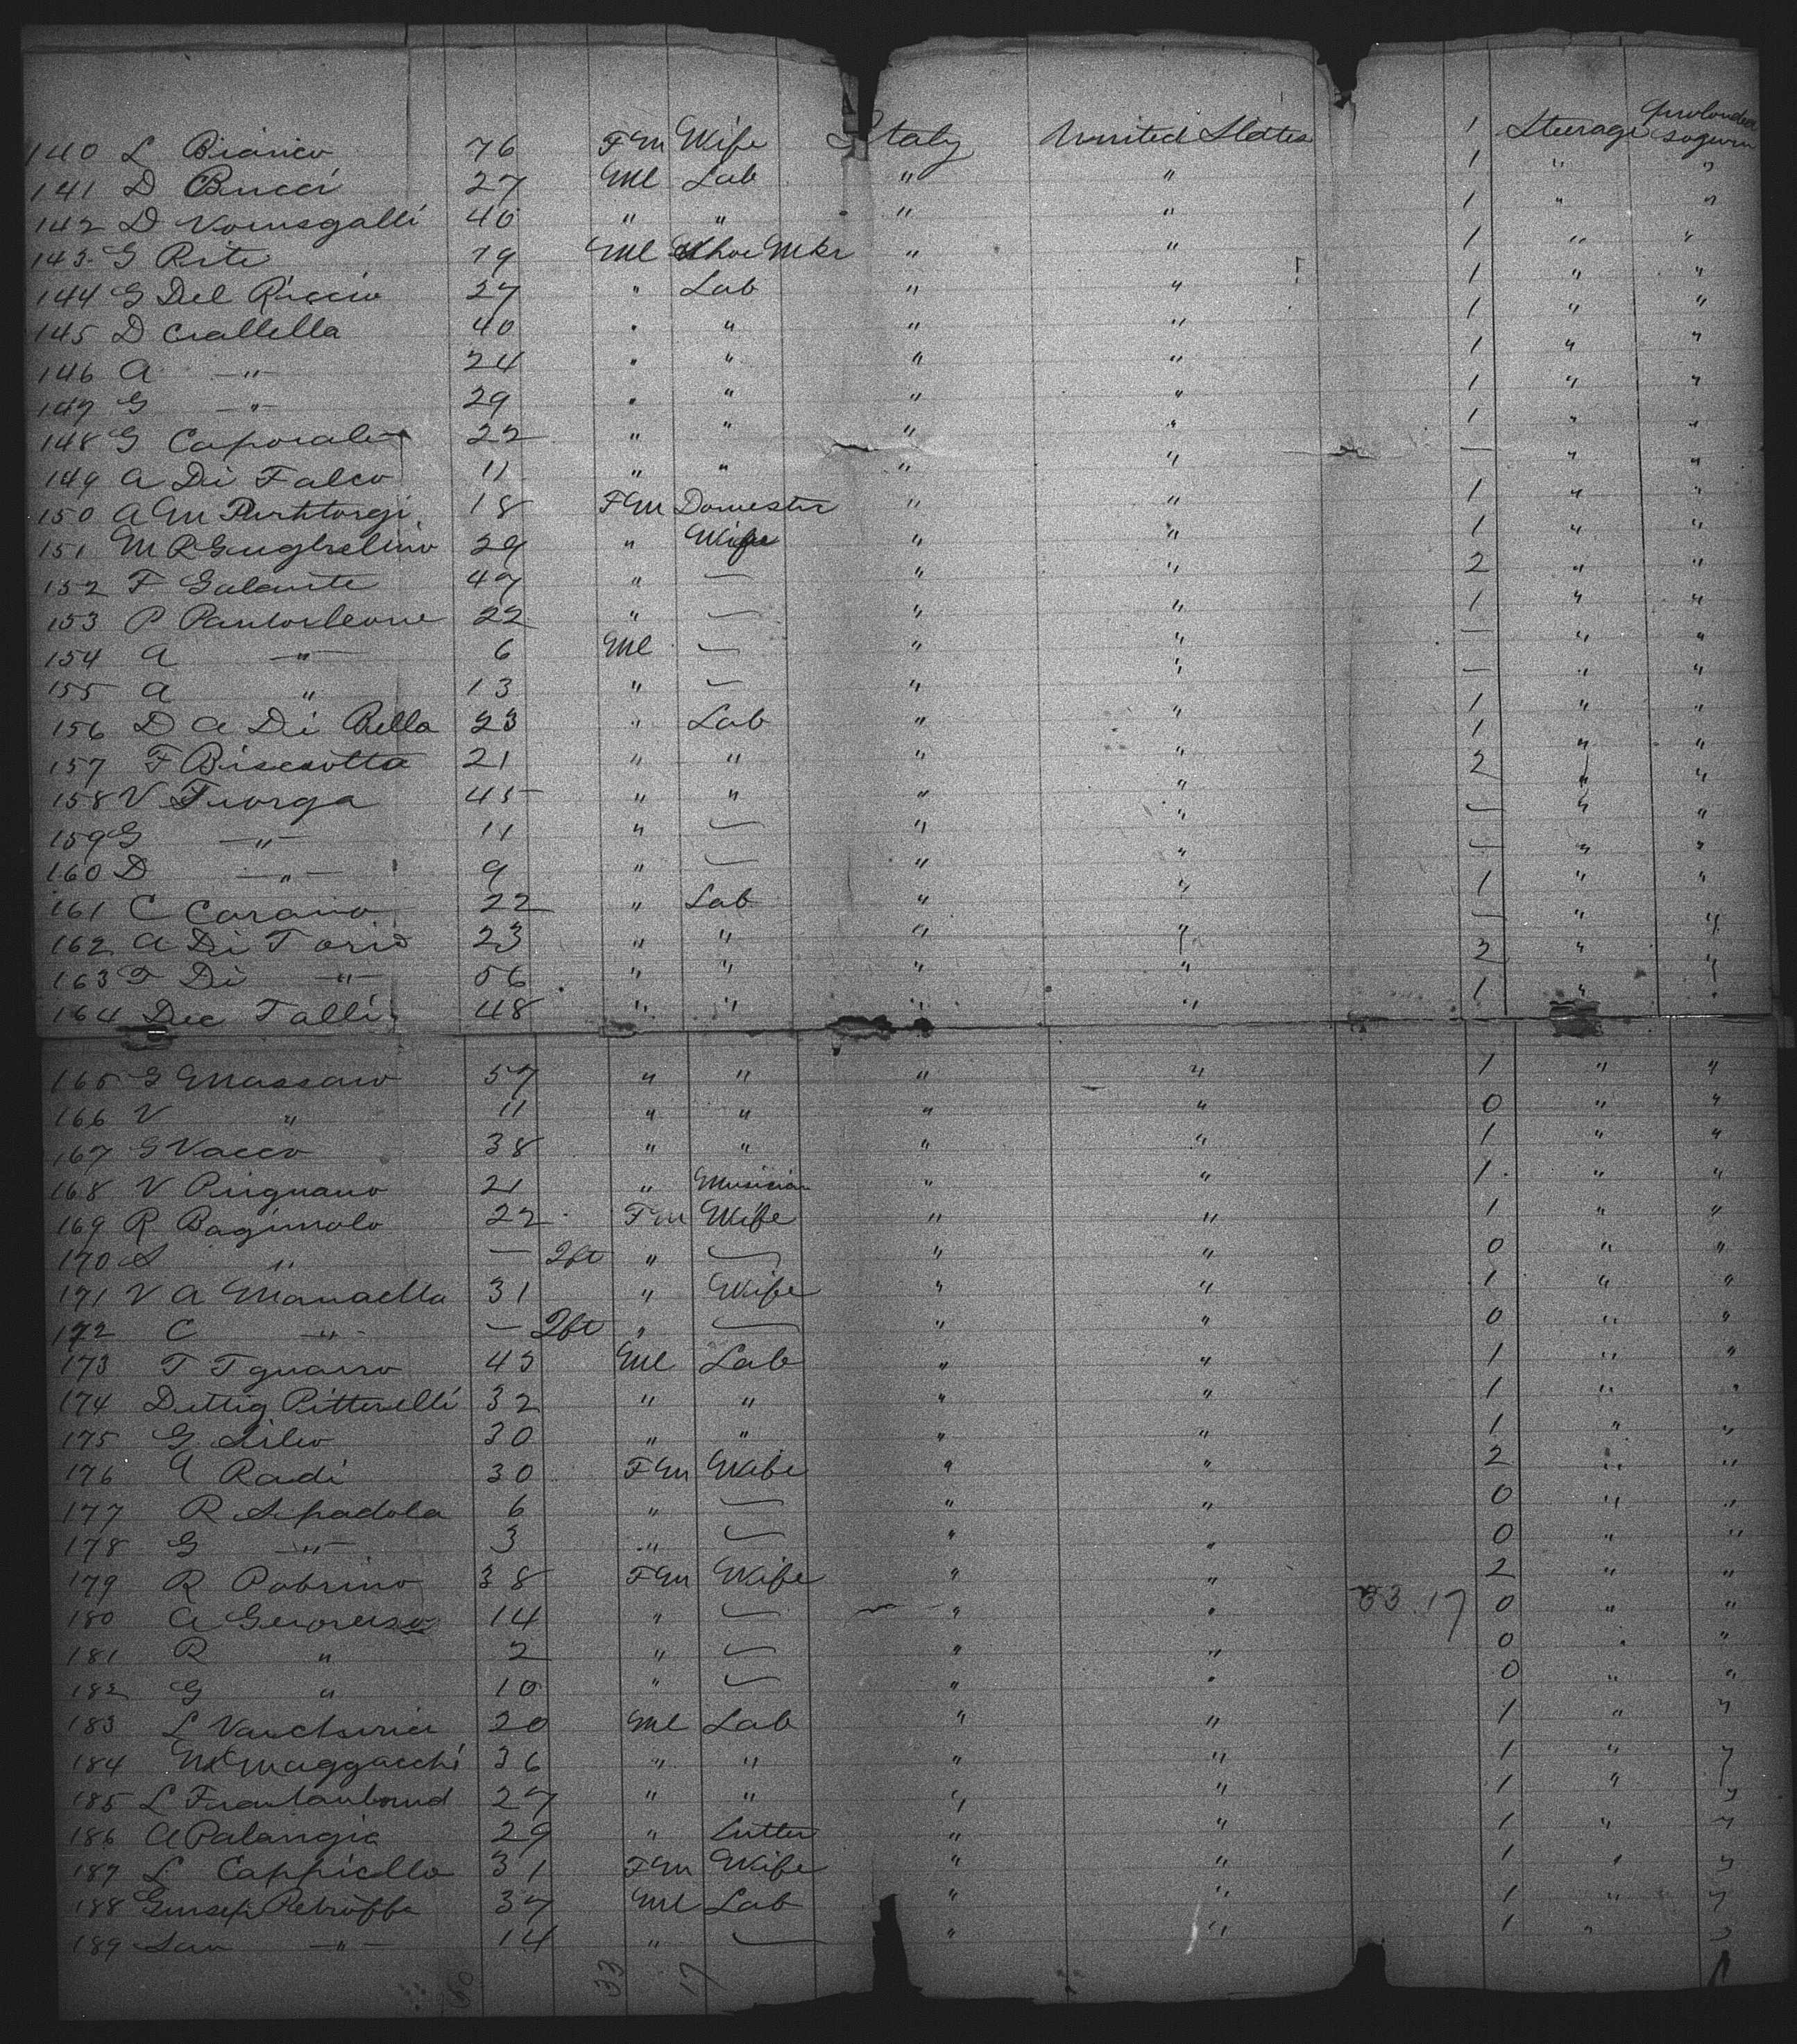 140 L Bianco 76 Fm Wife Italy United States 1 Steerage Prolonded sogurn
141 D Bucci 27 Ml Lab " " 1 " "
142 D Vomsgalli 40 " " " " 1 " "
143 G Rite 19 Ml Shoe Mkr " " 1 " "
144 G Del Riccio 27 " Lab " " 1 " "
145 D Ciallella 40 " " " " 1 " "
146 A —"— 24 " " " " 1 " "
147 G —"— 29 " " " " 1 " "
148 G Caporale 22 " " " " 1 " "
149 A Di Falco 11 " " " " — " "
150 A M 18 Fm Domestic " " 1 " "
151 M R Guglielmo 29 " Wife " " 1 " "
152 F Galante 47 " — " " 2 " "
153 P Pantoleone 22 " — " " 1 " "
154 A —"— 6 Ml — " " — " "
155 A " 13 " — " " — " "
156 D A Di Bella 23 " Lab " " 1 " "
157 F Biscotta 21 " " " " 1 " "
158 V Fiorga 45 " " " " 2 " "
159 G —"— 11 " — " " — " "
160 D —"— 9 " — " " — " "
161 C Carano 22 " Lab " " 1 " "
162 A Di Torio 23 " " " " — " "
163 F Di —"— 56 " " " " 2 " "
164 Dee Talli 48 " " " " 1 " "
165 G Massaro 57 " " " " 1 " "
166 V " 11 " " " " 0 " "
167 G Vacco 38 " " " " 1 " "
168 V Prignano 21 " Musician " " 1 " "
169 R Bagimolo 22 Fm Wife " " 1 " "
170 S " — 2ft " — " " 0 " "
171 V A Manaella 31 " Wife " " 1 " "
172 C —"— — 2ft " — " " 0 " "
173 T Tgnarro 45 Ml Lab " " 1 " "
174 Dettig Pitterelli 32 " " " " 1 " "
175 G Lileo 30 " " " " 1 " "
176 A Radi 30 Fm Wife " " 2 " "
177 R Spadola 6 " — " " 0 " "
178 G —"— 3 " — " " 0 " "
179 R Pobrino 38 Fm Wife " " 2 " "
180 A 14 " — " " 33 17 0 " "
181 R " 2 " — " " 0 " "
182 G " 10 " — " " 0 " "
183 L 20 Ml Lab " " 1 " "
184 M Maggacchi 36 " " " " 1 " "
185 L 27 " " " " 1 " "
186 A Palangia 29 " Cutter " " 1 " "
187 L Cappicllo 31 Fm Wife " " 1 " "
188 Giusep Petroffa 37 Ml Lab " " 1 " "
189 San —"— 14 " — " " 1 " "
33 17